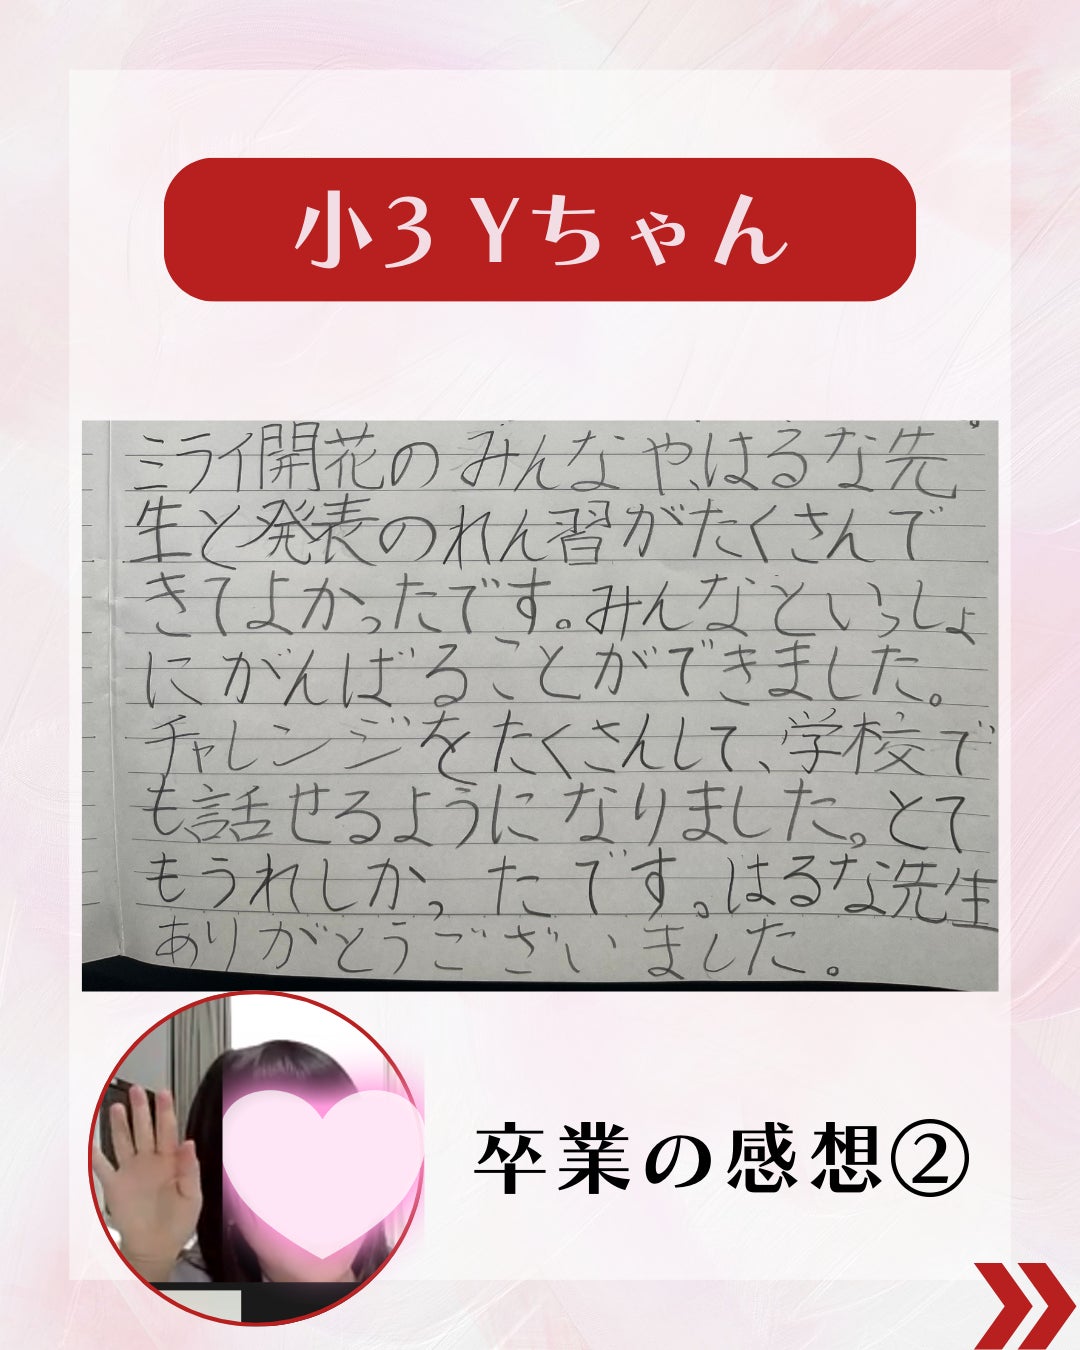 小3 Yちゃん
ミライ開花のみんなや、はるな先
生と発表のれん習がたくさんで
きてよかったです。みんなといっしょ
にがんばることができました。
チャレンジをたくさんして、学校で
も話せるようになりました。とて
もうれしかったです。はるな先生
ありがとうございました。
卒業の感想②